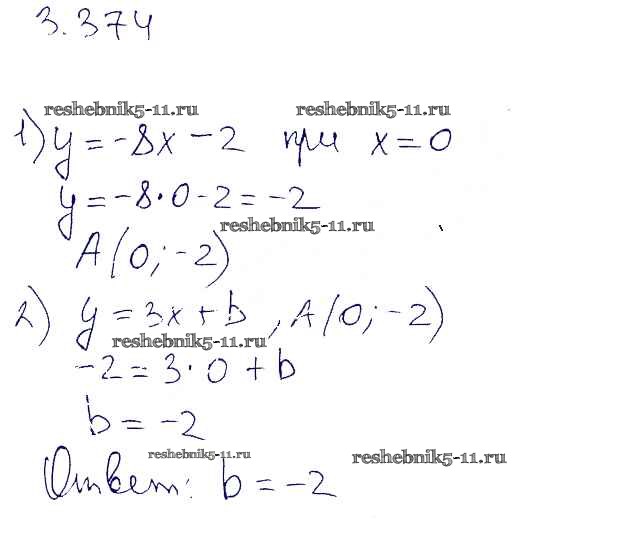 3.374
reshebnik5-11.ru reshebnik5-11.ru
1) y = -8x - 2 при x = 0
y = -8 · 0 - 2 = -2
reshebnik5-11.ru
A(0; -2)
2) y = 3x + b, A(0; -2)
reshebnik5-11.ru
-2 = 3 · 0 + b
b = -2
reshebnik5-11.ru reshebnik5-11.ru
Ответ: b = -2